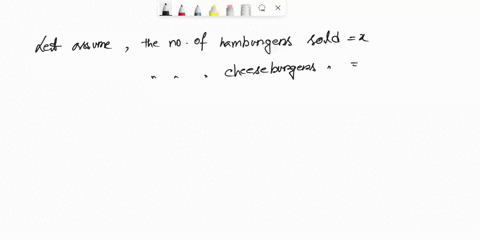 Let assume, the no. of hamburgers sold = x
" " " cheeseburgers " =